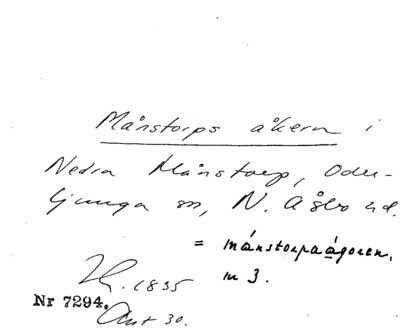 Månstorps åkern i
Nedra Månstorp, Oder-
ljunga sn, N. Åsbo hd.
= månstorpaågoren.
m 3.
1835
Nr 7294.
Ant 30.